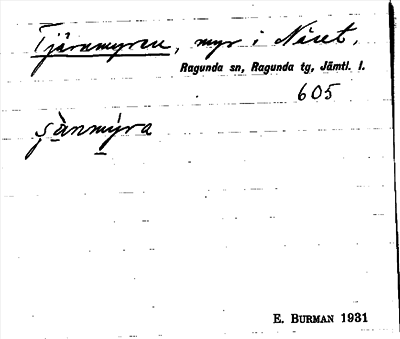 Tjärnmyren, myr i Näset,
Ragunda sn, Ragunda tg, Jämtl. l.
605
s̨ànmýra
E. BURMAN 1931